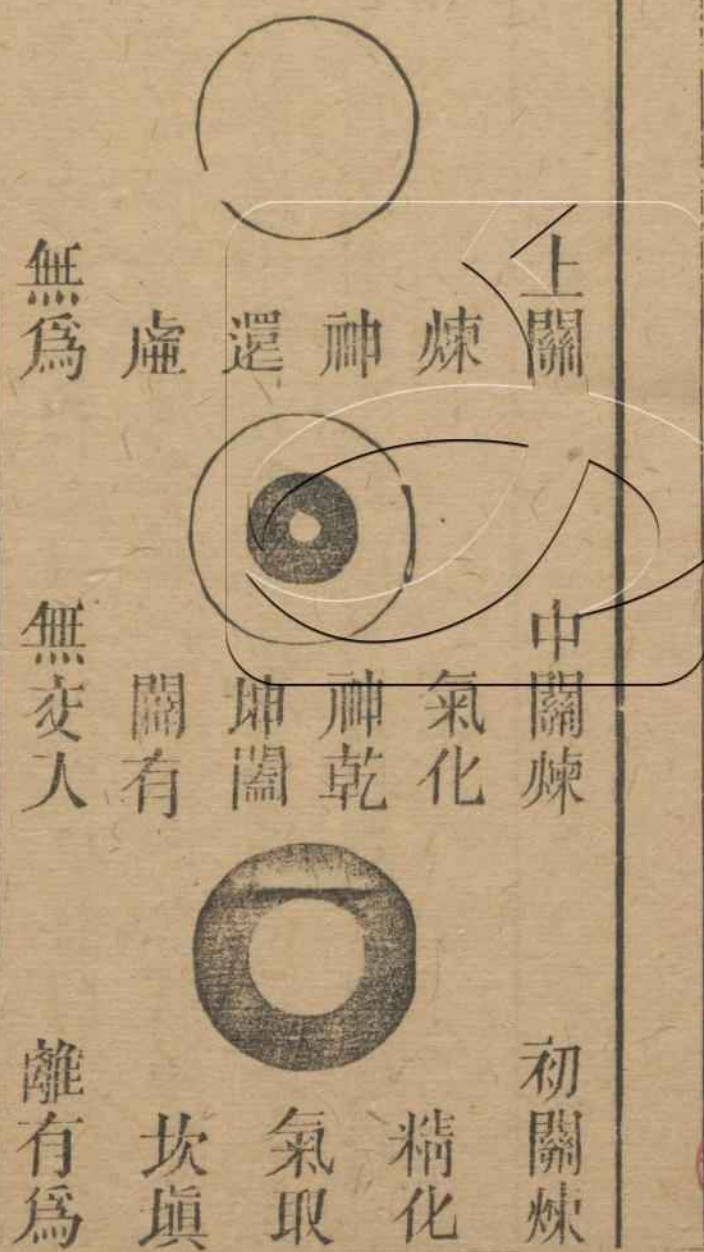 上關
煉
神
還
虛
無爲
中關煉
氣化
神乾
坤闔
闢有
無交入
初關煉
精化
氣取
坎塡
離有爲